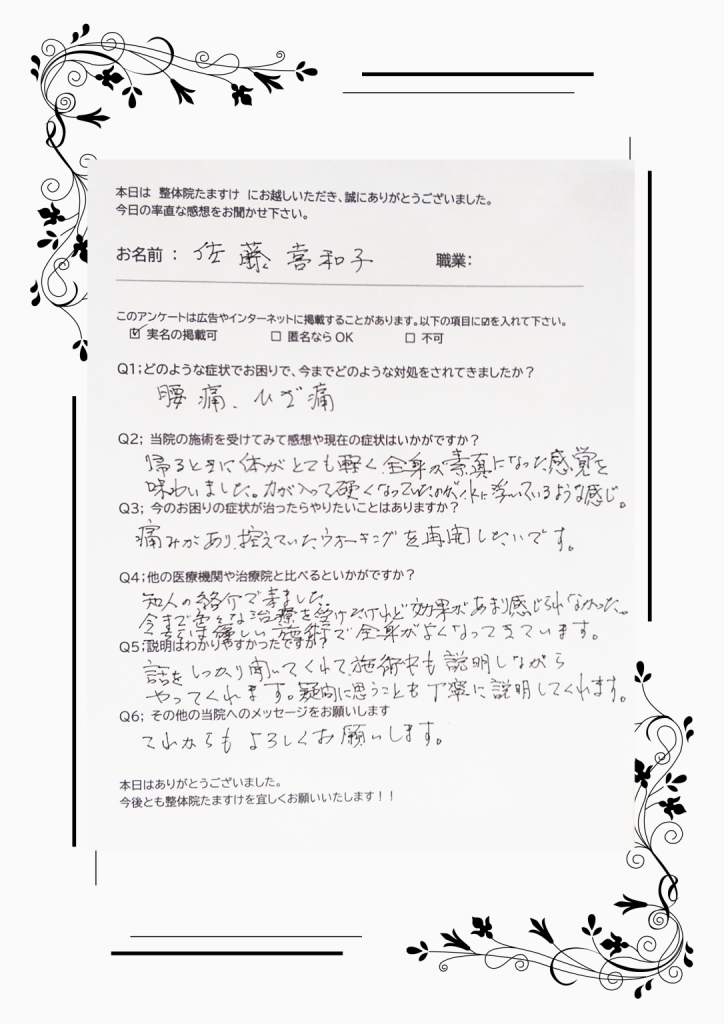 本日は 整体院たますけ にお越しいただき、誠にありがとうございました。
今日の率直な感想をお聞かせ下さい。
お名前 : 佐藤喜和子 職業:
このアンケートは広告やインターネットに掲載することがあります。以下の項目に☑を入れて下さい。
☑ 実名の掲載可 □ 匿名なら OK □ 不可
Q1;どのような症状でお困りで、今までどのような対処をされてきましたか?
腰痛、ひざ痛
Q2; 当院の施術を受けてみて感想や現在の症状はいかがですか?
帰るときに体がとても軽く全身が素直になった感覚を
味わいました。力が入って硬くなっていたのが水に浮いているような感じ。
Q3; 今のお困りの症状が治ったらやりたいことはありますか?
痛みがあり、控えていたウオーキングを再開したいです。
Q4;他の医療機関や治療院と比べるといかがですか?
知人の紹介で来ました。
今まで色々な治療を受けたけれど効果があまり感じられなかった。
優しい施術で全身がよくなってきています。
Q5;説明はわかりやすかったですか?
話をしっかり聞いてくれて、施術中も説明しながら
やってくれます。疑問に思うことも丁寧に説明してくれます。
Q6; その他の当院へのメッセージをお願いします
これからもよろしくお願いします。
本日はありがとうございました。
今後とも整体院たますけを宜しくお願いいたします!!